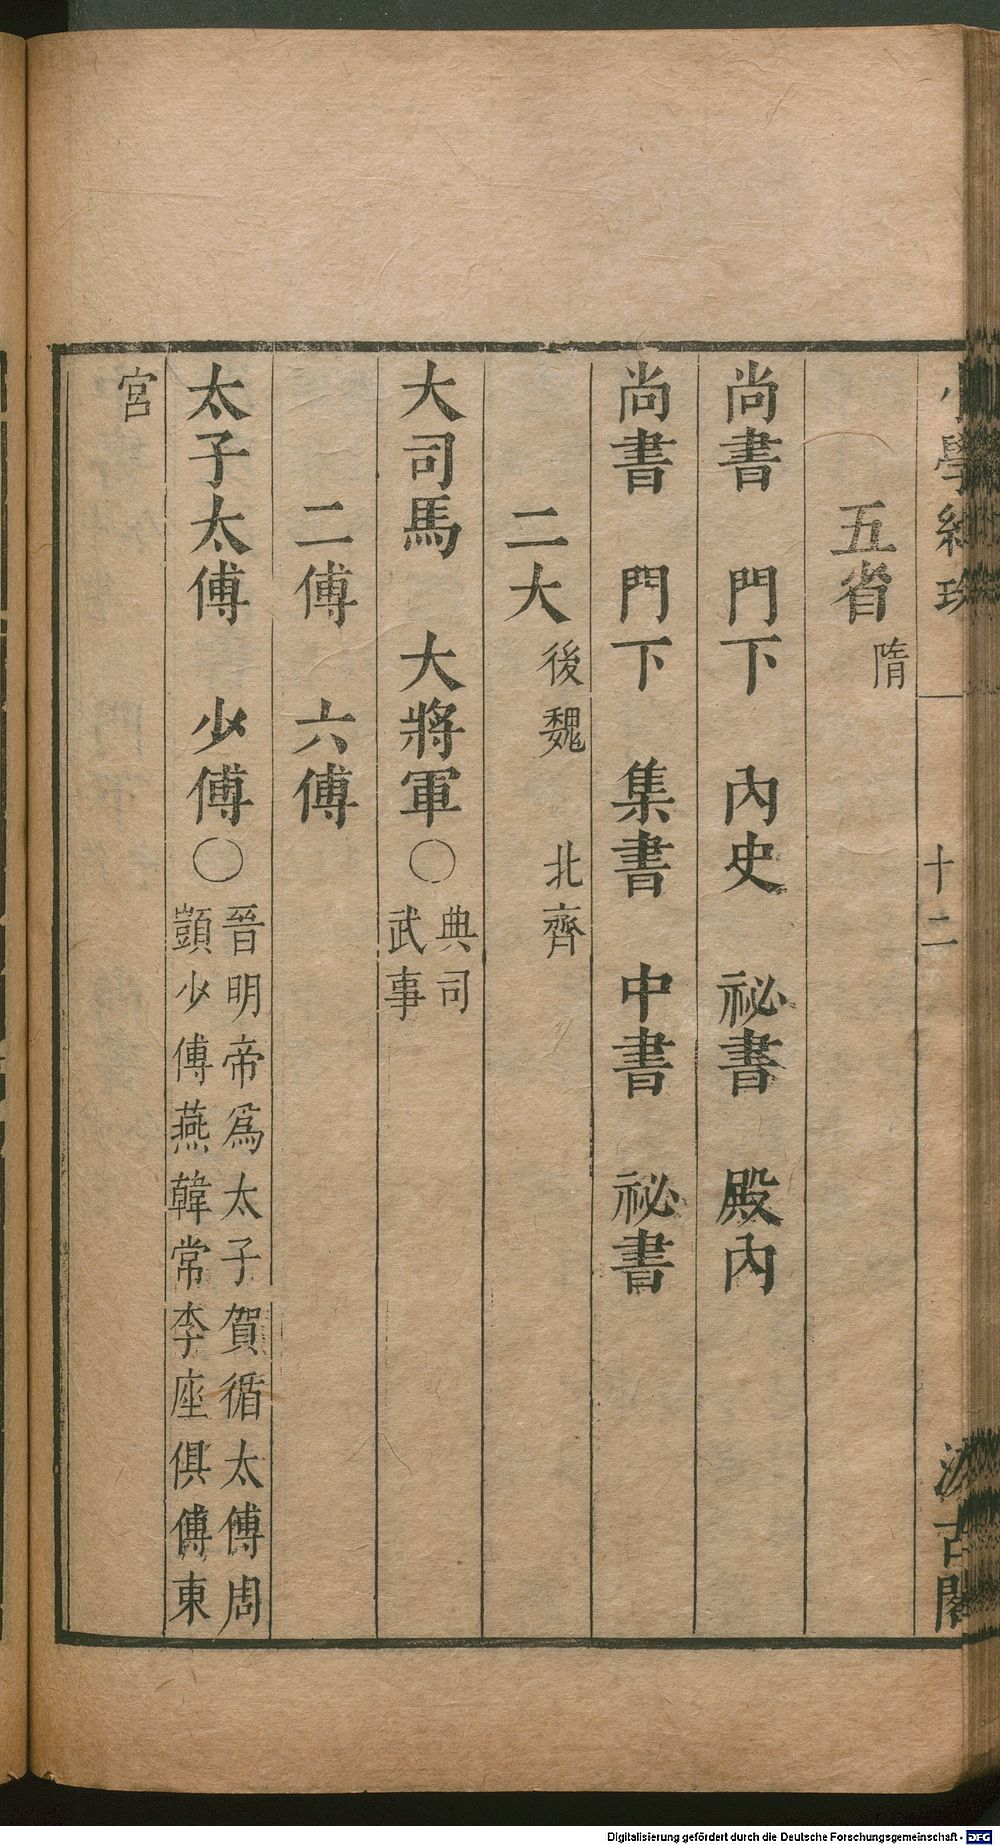 小學紺珠
十二
汲古閣
五省 隋
尚書 門下 內史 祕書 殿內
尚書 門下 集書 中書 祕書
二大 後魏 北齊
大司馬 大將軍○典司
武事
二傅 六傅
太子太傅 少傅○晉明帝爲太子賀循太傅周
顗少傅燕韓常李座俱傅東
宮
Digitalisierung gefördert durch die Deutsche Forschungsgemeinschaft - DFG